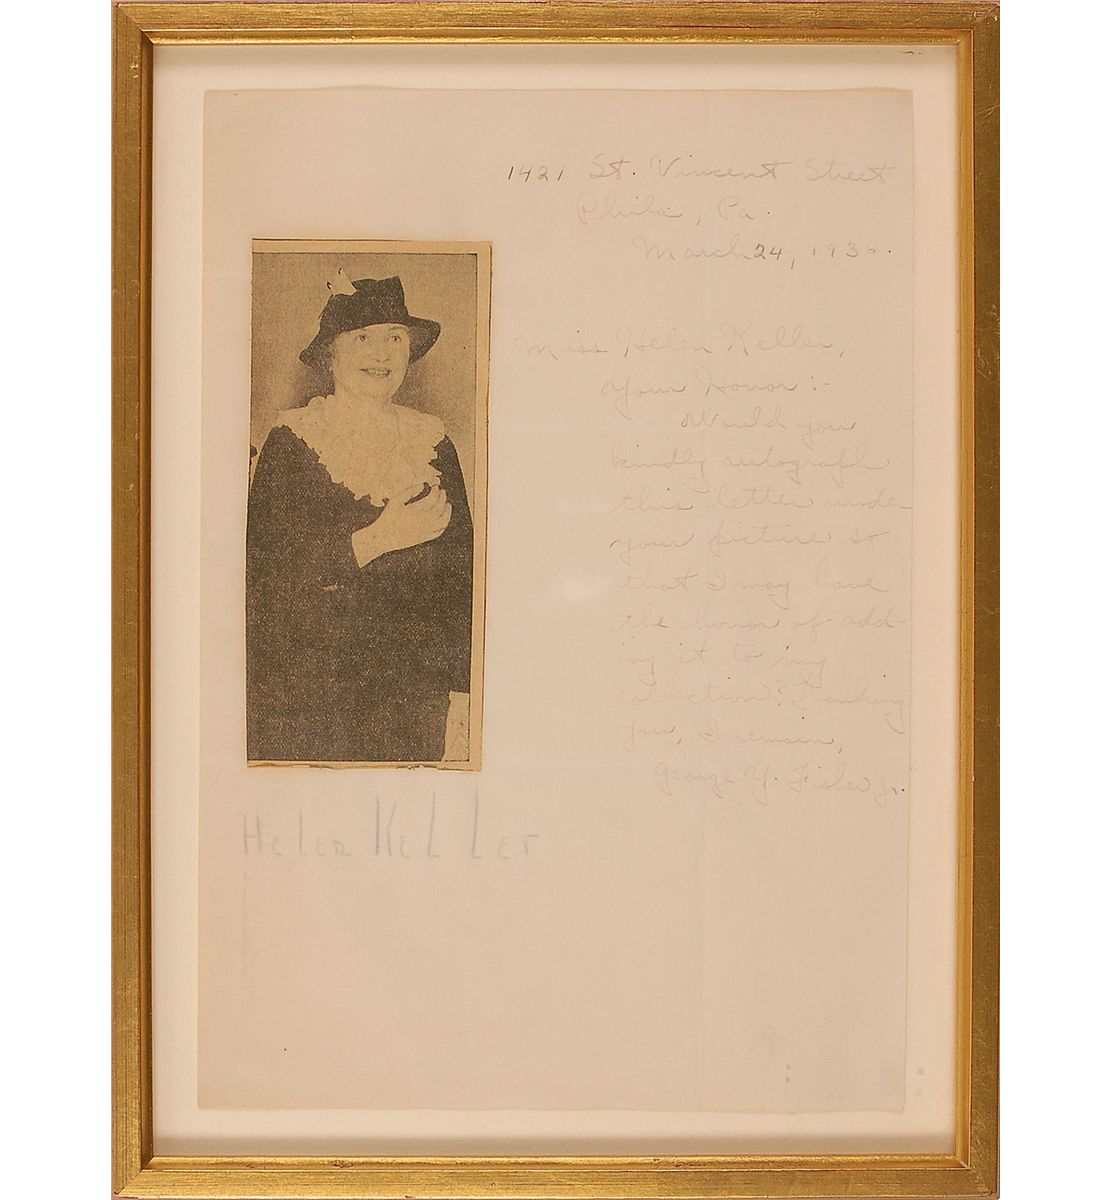 1421 St. Vincent Street
Phila, Pa.
March 24, 1936.
Miss Helen Keller,
Your Honor:-
Would you
kindly autograph
this letter under
your picture so
that I may have
the honor of add-
ing it to my
collection? Thanking
you, I remain,
George Y. Fisher Jr.
Helen Keller